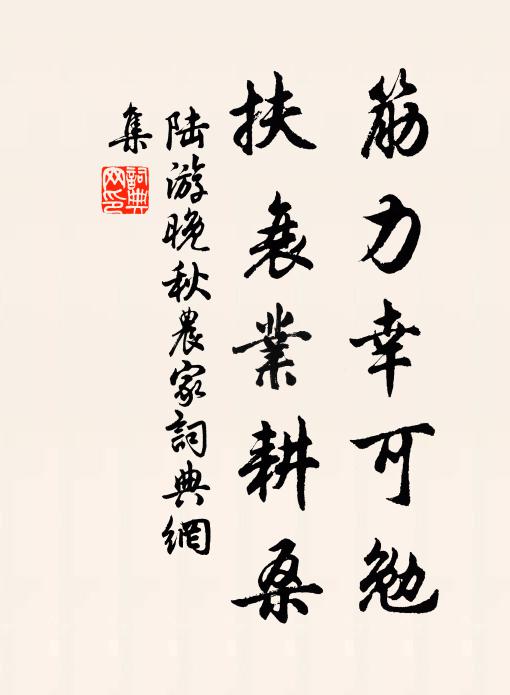 筋力幸可勉
扶衰業耕桑
陸游晚秋農家詞典網
集
詞典網印